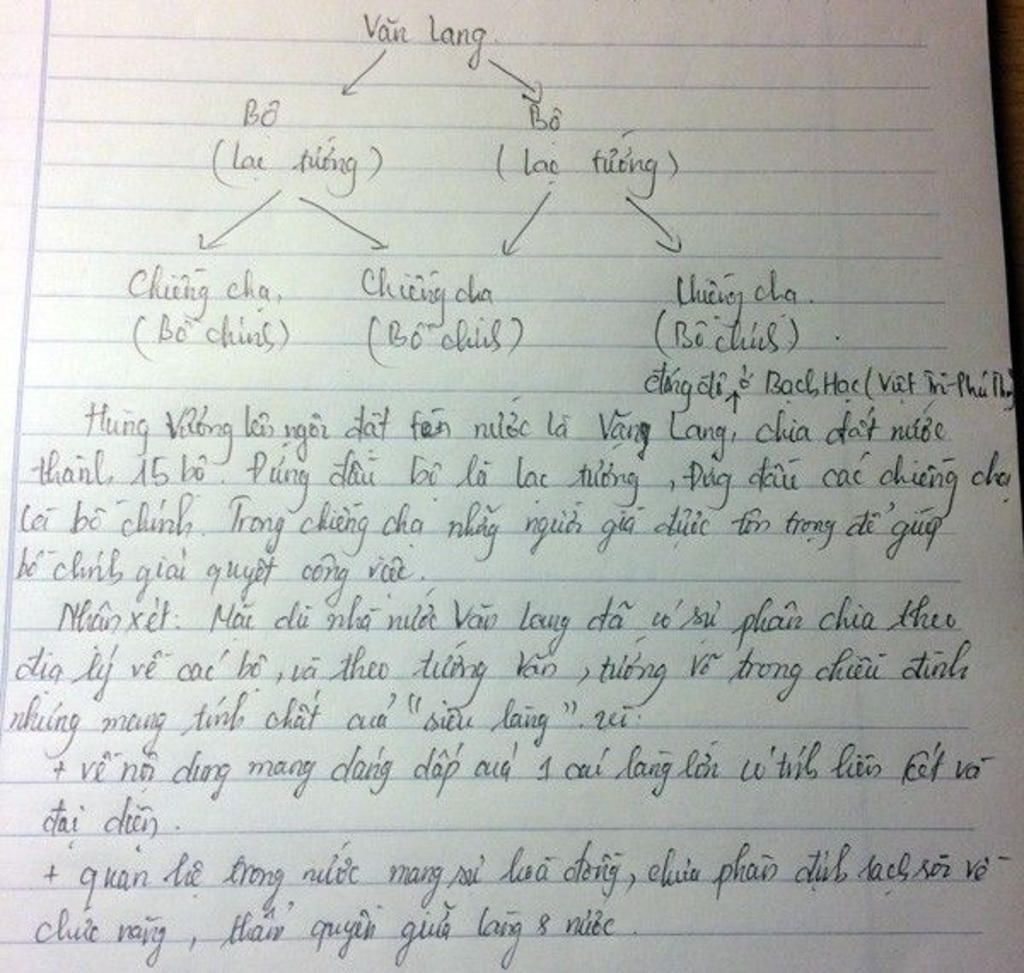 Văn Lang.
Bộ Bộ
(Lạc tướng) (Lạc tướng)
Chiềng chạ, Chiềng chạ Chiềng chạ.
(Bồ chính) (Bồ chính) (Bồ chính).
đóng đô ở Bạch Hạc (Việt Trì-Phú Thọ)
Hùng Vương lên ngôi đặt tên nước là Văng Lang, chia đất nước
thành 15 bộ. Đứng đầu bộ là lạc tướng, Đứg đầu các chiềng chạ
là bồ chính. Trong chiềng chạ nhữg người già được tôn trọng để giúp
bồ chính giải quyết công việc.
Nhận xét: Mặc dù nhà nước Văn Lang đã có sự phân chia theo
địa lý về các bộ, và theo tướng văn, tướng võ trong chiều đình
nhưng mang tính chất của "siêu làng". vì:
+ về nội dung mang dáng dấp của 1 cái làng lớn có tính liên kết và
đại diện.
+ quan hệ trong nước mang sự hoà đồng, chưa phân định rạch ròi về
chức năng, thẩm quyền giữa làng & nước.